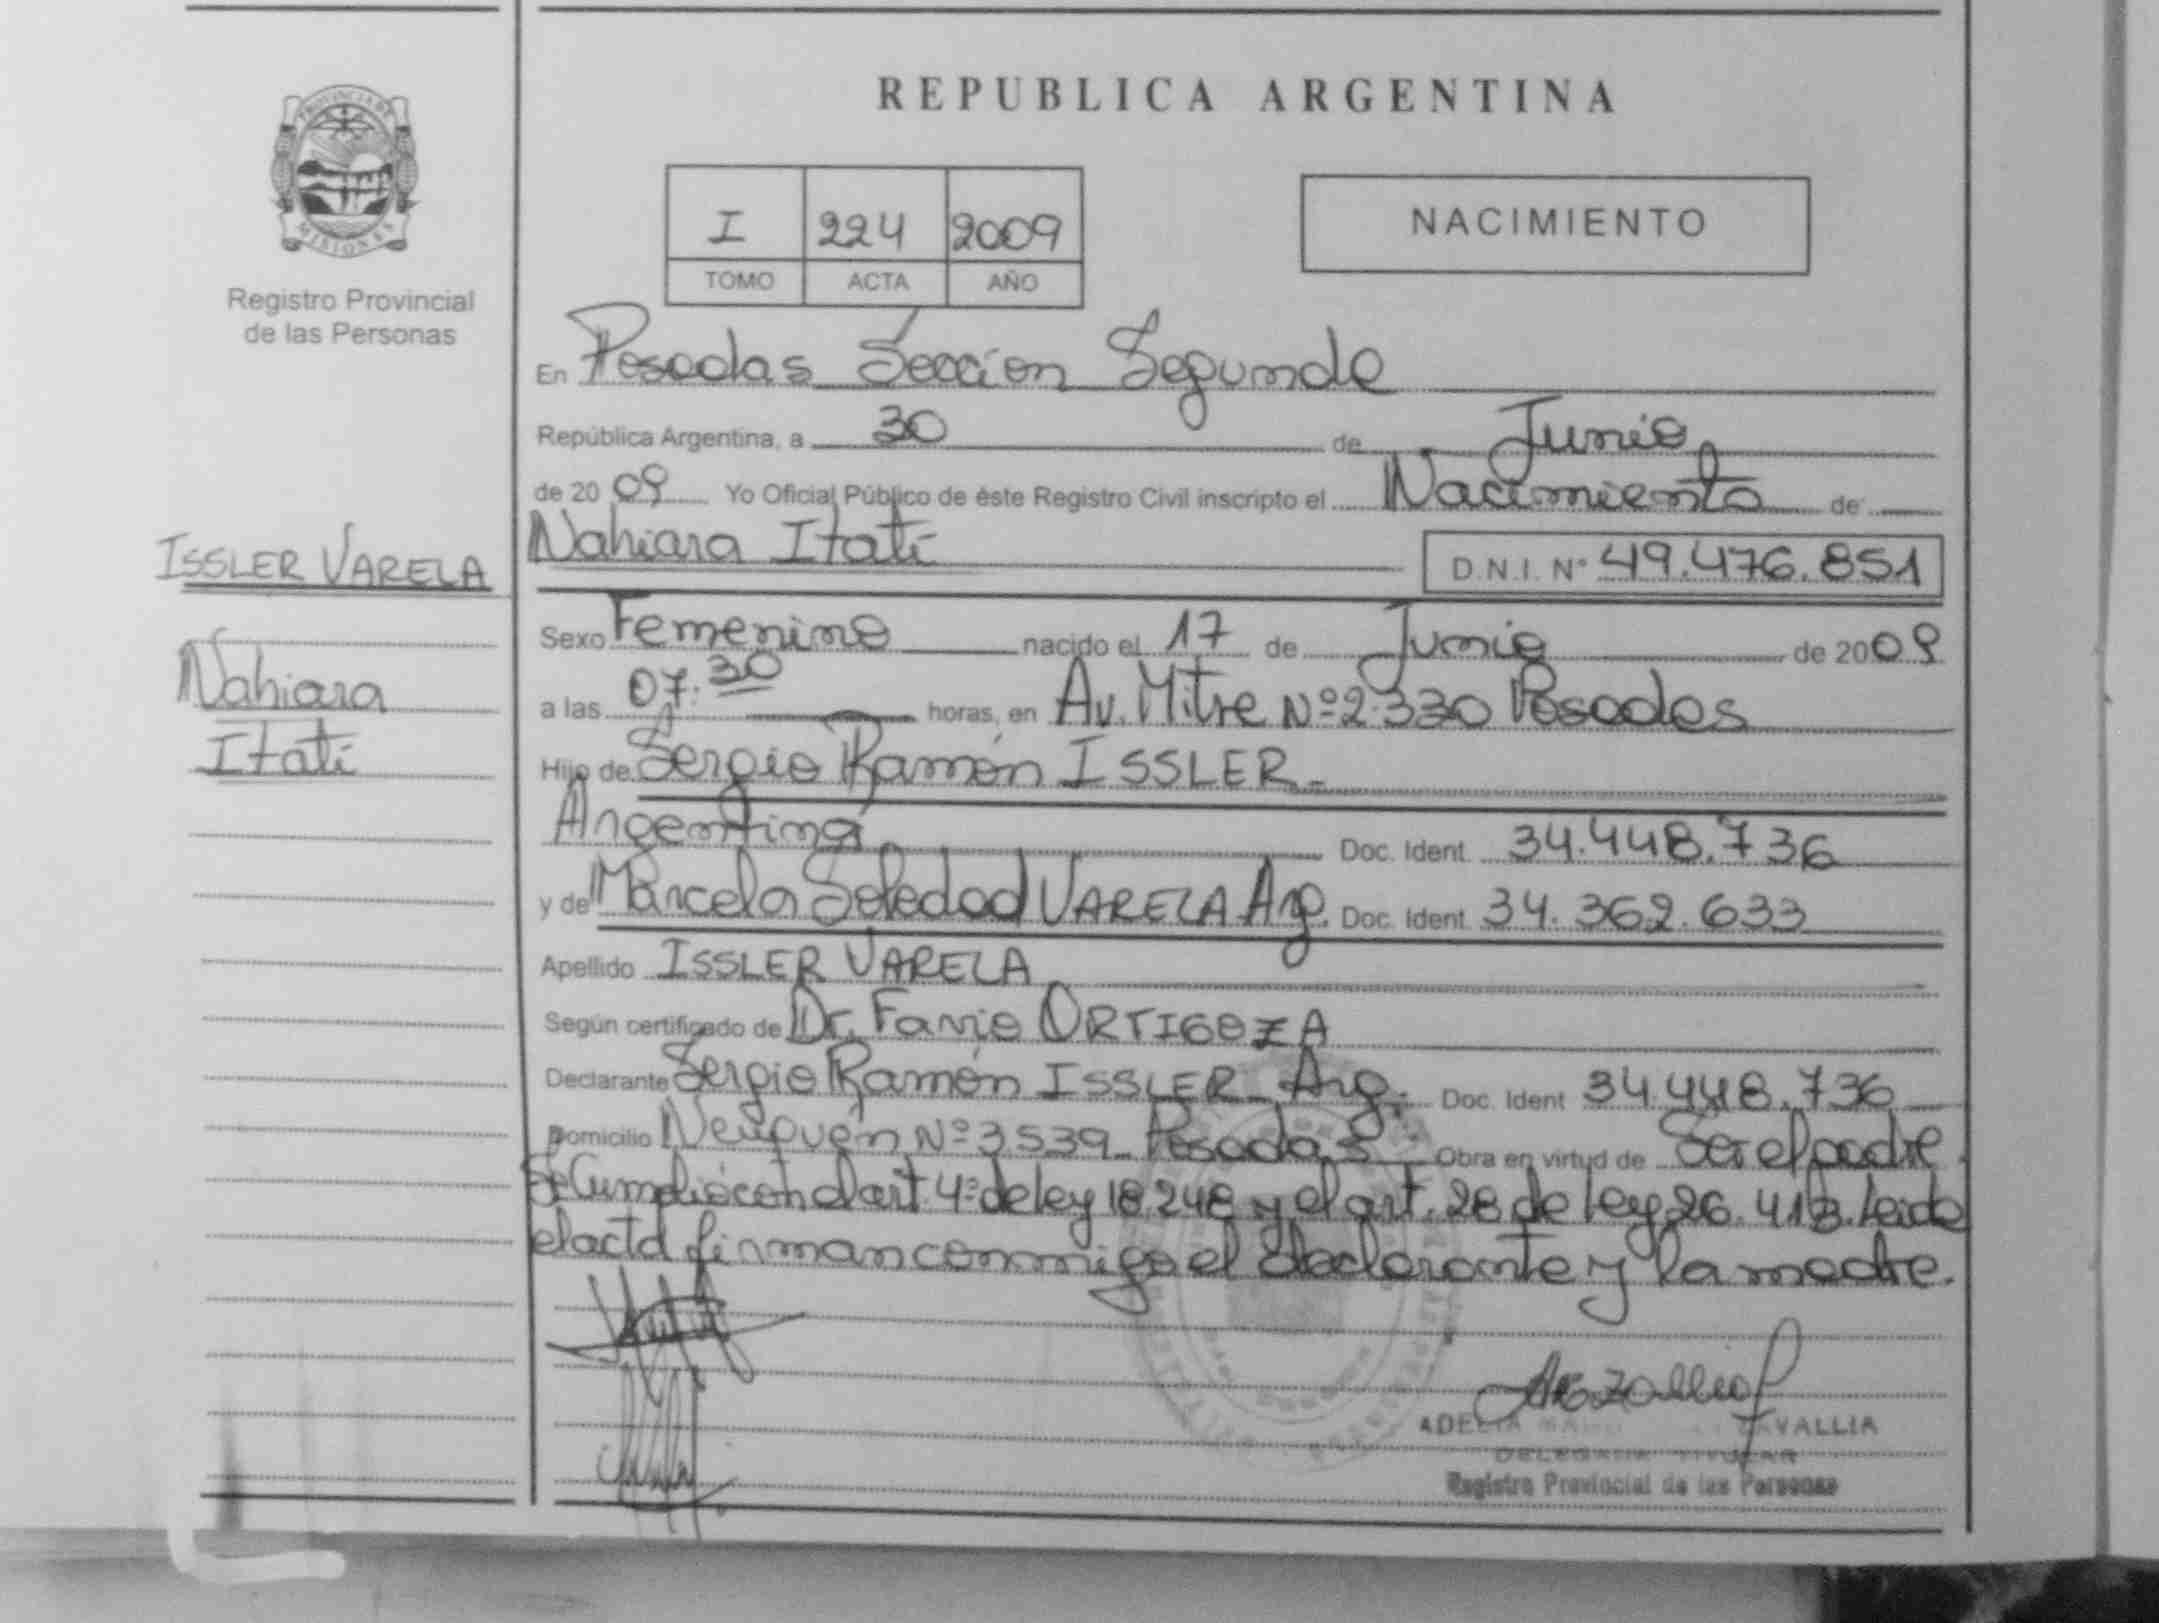 REPUBLICA ARGENTINA
PROVINCIA DE
MISIONES
Registro Provincial
de las Personas
I 224 2009
TOMO ACTA AÑO
NACIMIENTO
En Posadas Sección Segunda
República Argentina, a 30 de Junio
de 2009 Yo Oficial Público de éste Registro Civil inscripto el Nacimiento de
ISSLER VARELA
Nahiara
Itatí
Nahiara Itatí D.N.I. Nº 49.476.851
Sexo Femenino nacido el 17 de Junio de 2009
a las 07:30 horas, en Av. Mitre Nº 2.330 Posadas
Hijo de Sergio Ramón ISSLER
Argentina Doc. Ident. 34.448.736
y de Marcela Soledad VARELA Arg. Doc. Ident. 34.362.633
Apellido ISSLER VARELA
Según certificado de Dr. Favio ORTIGOZA
Declarante Sergio Ramón ISSLER Arg. Doc. Ident 34.448.736
Domicilio Neuquén Nº 3539 Posadas Obra en virtud de Ser el padre.
Se Cumplió con el art. 4º de ley 18.248 y el art. 28 de ley 26.413. Leida
el acta firman conmigo el declarante y la madre.
ADELIA ZAVALLIA
DELEGADA TITULAR
Registro Provincial de las Personas